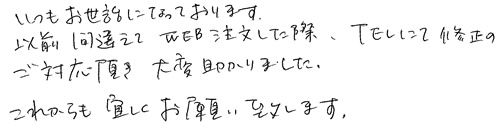 いつもお世話になっております。
以前間違えて WEB注文した際、TELにて修正の
ご対応頂き大変助かりました。
これからも宜しくお願い致します。